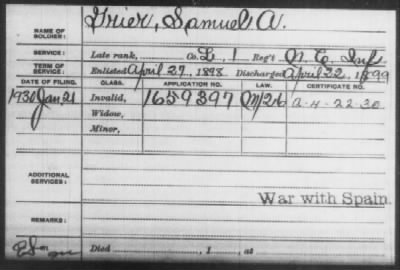 NAME OF SOLDIER: Grier, Samuel A.
SERVICE: Late rank, Co. L, 1 Reg't N.C. Inf.
TERM OF SERVICE: Enlisted April 27, 1898 Discharged April 22, 1899
DATE OF FILING. CLASS. APPLICATION NO. LAW. CERTIFICATE NO.
1930 Jan 21 Invalid, 1659397 M/26 A-4-22-30
Widow,
Minor,
ADDITIONAL SERVICES:
War with Spain.
REMARKS:
Died , 1 , at